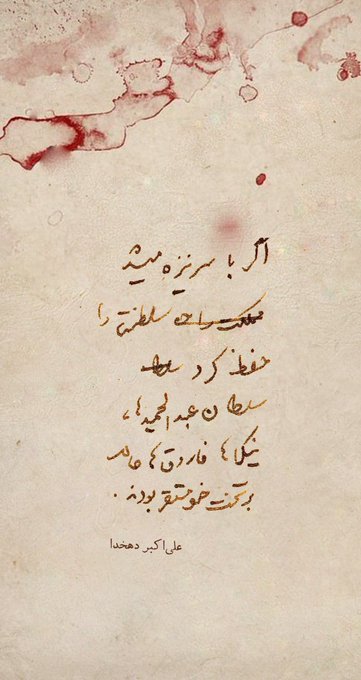 اگر با سرنیزه میشد
مملکت سلطنت را
حفظ کرد سلطا
سلطان عبدالحمیدها،
نیکلاها فاروق‌ها حالا
بر تخت خود مستقر بودند.
علی اکبر دهخدا